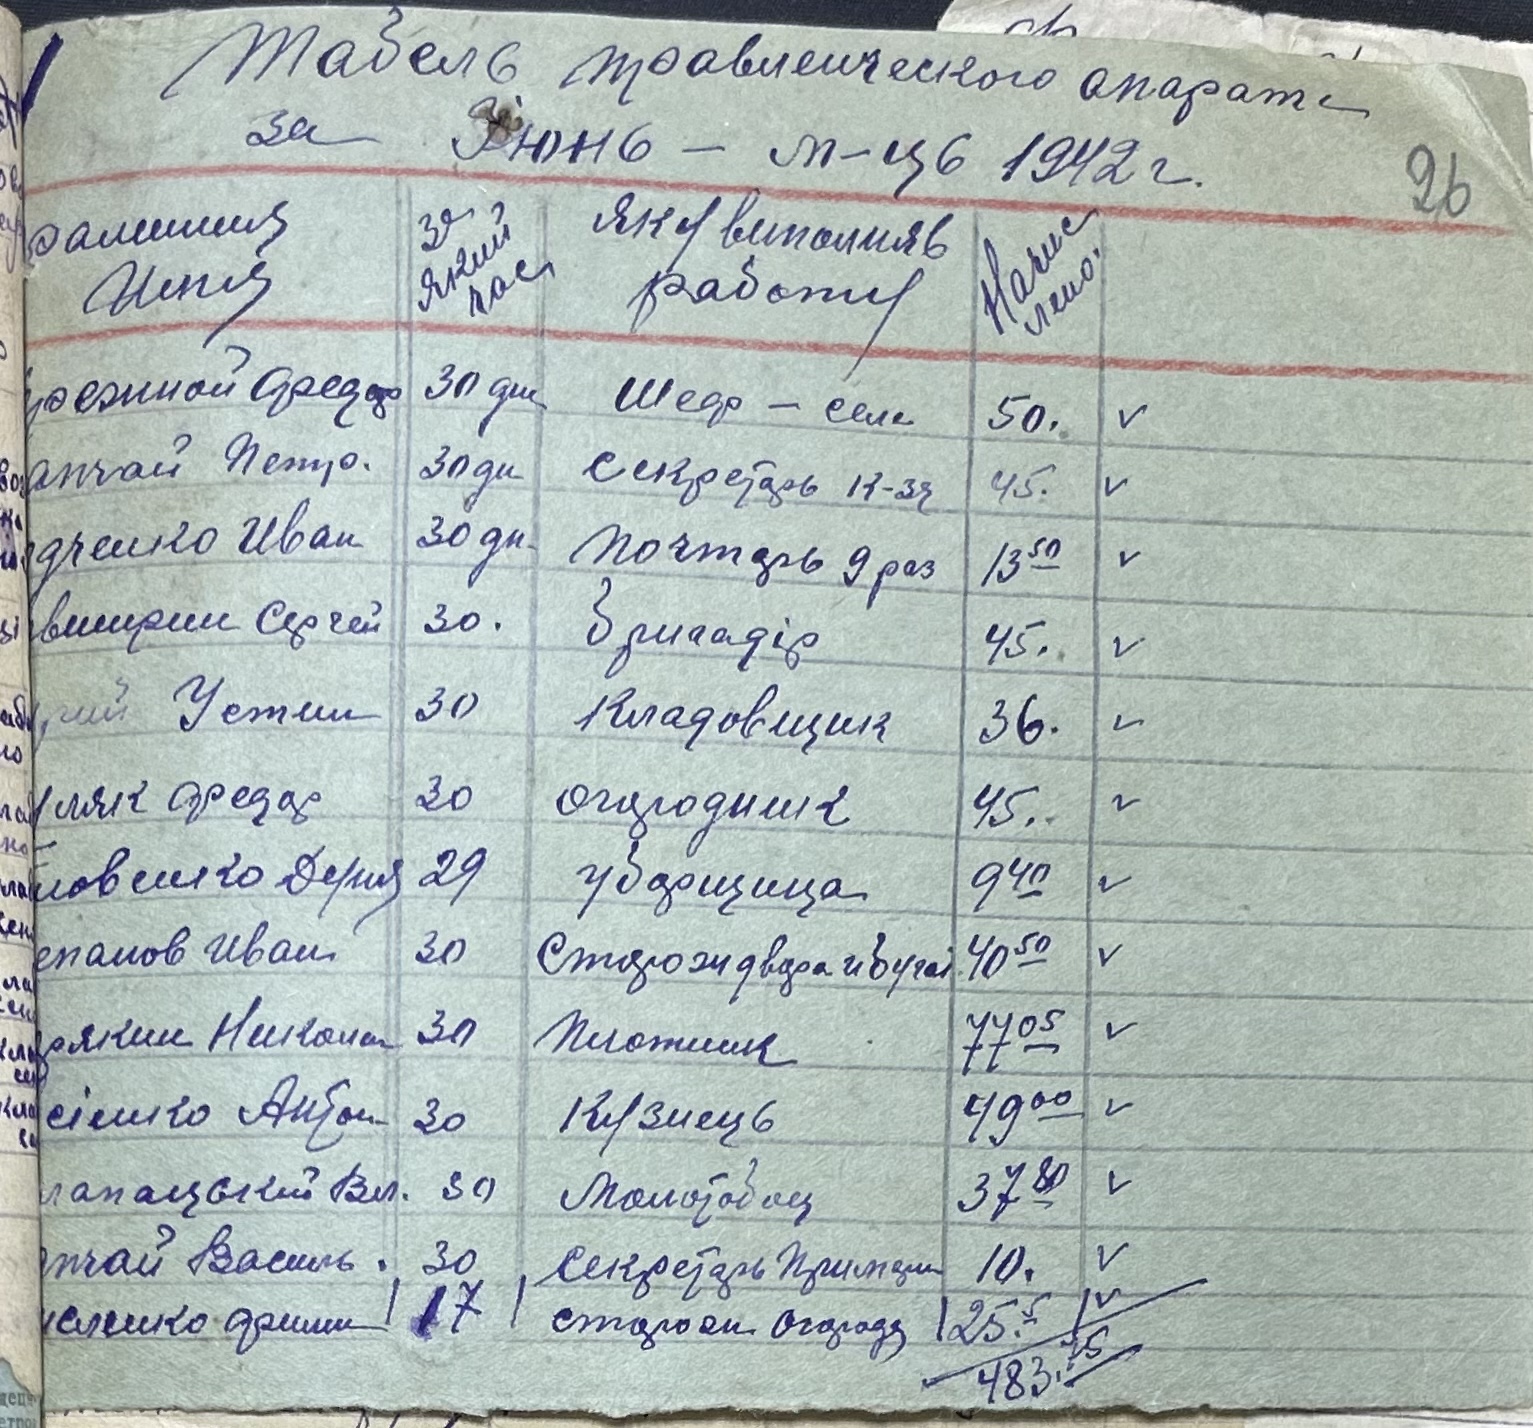 Табель правленческого апарата
за Июнь - м-ць 1942 г.
26
фамилия Имя за який час яку виполняв работу Начислено.
Федор 30 дн Шеф - села 50. ✓
апчай Петро. 30 дн Секретарь к-за 45. ✓
дченко Иван 30 дн. Почтарь 9 раз 13 50 ✓
Сергей 30. Бригадір 45. ✓
рий Устин 30 Кладовщик 36. ✓
ляк Федор 30 огородник 45. ✓
новенко Дуня 29 уборщица 9 40 ✓
епанов Иван 30 Сторож двора и бугая 40 50 ✓
рякин Николай 30 Плотник 77 05 ✓
сіенко Антон 30 Кузнець 49 00 ✓
лапацький Вл. 30 Молотобоец 37 80 ✓
пчай Василь. 30 Секретарь 10. ✓
сленко 17 сторож огорода 25. 5 ✓
483.75